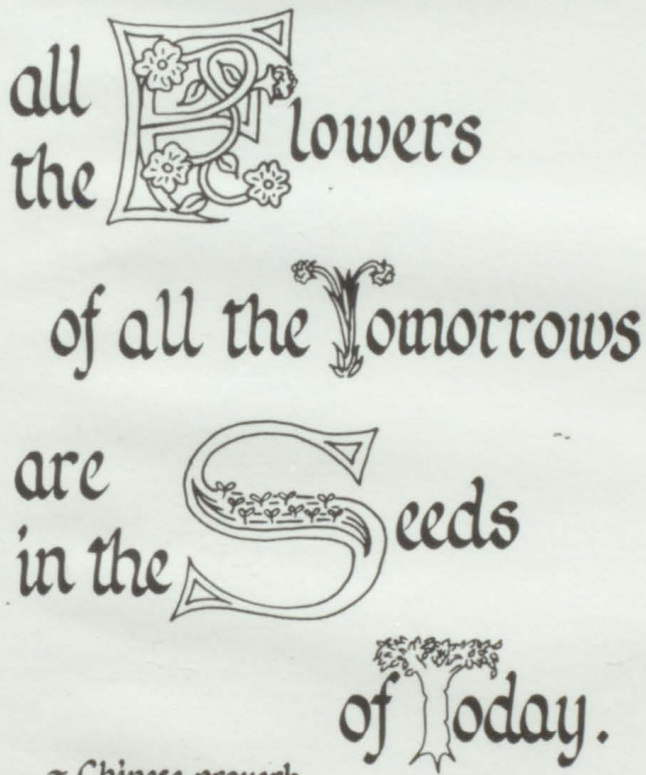 all
the Flowers
of all the Tomorrows
are
in the Seeds
of Today.
~ Chinese proverb